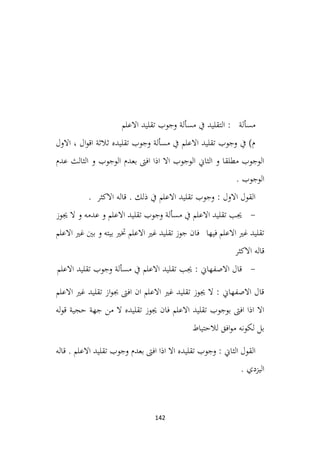 مسألة : التقليد في مسألة وجوب تقليد الاعلم
م) في وجوب تقليد الاعلم في مسألة وجوب تقليده ثلاثة اقوال ، الاول
الوجوب مطلقا و الثاني الوجوب الا اذا افتى بعدم الوجوب و الثالث عدم
الوجوب .
القول الاول : وجوب تقليد الاعلم في ذلك . قاله الاكثر .
- يجب تقليد الاعلم في مسألة وجوب تقليد الاعلم و عدمه و لا يجوز
تقليد غير الاعلم فيها فان جوز تقليد غير الاعلم تخير بينه و بين غير الاعلم
قاله الاكثر
- قال الاصفهاني : يجب تقليد الاعلم في مسألة وجوب تقليد الاعلم
قال الاصفهاني : لا يجوز تقليد غير الاعلم ان افتى بجواز تقليد غير الاعلم
الا اذا افتى بوجوب تقليد الاعلم فان يجوز تقليده لا من جهة حجية قوله
بل لكونه موافق للاحتياط
القول الثاني : وجوب تقليده الا اذا افتى بعدم وجوب تقليد الاعلم . قاله
اليزدي .
142